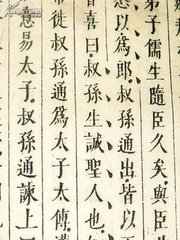 弟子儒生隨臣久矣與臣
悉以爲郎叔孫通出皆以
喜曰叔孫生誠聖人也
徙叔孫通爲太子太傅
意易太子叔孫通諫上